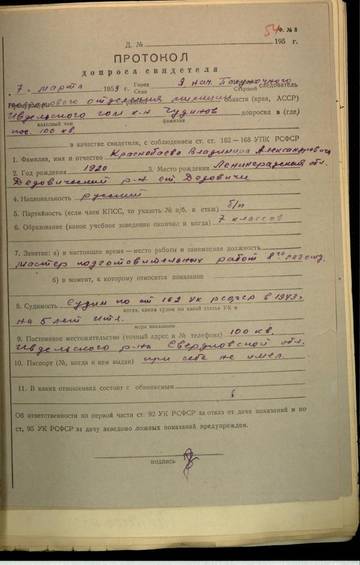 54
Ф. № 8
Д. № 195 г.
ПРОТОКОЛ
допроса свидетеля
7. марта 1959 г. Город Я нач. Полуночного
Село Старший следователь
отделения милиции области (края, АССР)
Ивдельского к-н Чудинов допросил в (где)
классный чин фамилия
пос. 100 кв.
в качестве свидетеля, с соблюдением ст. ст. 162—168 УПК РСФСР
1. Фамилия, имя и отчество Краснобаева Владимира Александровича
2. Год рождения 1920 3. Место рождения Ленинградская обл.
Дедовический р-н ст. Дедовичи
4. Национальность русский
5. Партийность (если член КПСС, то указать № п/б. и стаж) б/п
6. Образование (какое учебное заведение окончил и когда) 7 классов
7. Занятие: а) в настоящее время — место работы и занимаемая должность
мастер подготовительных работ
б) в момент, к которому относятся показания
8. Судимость Судим по ст 162 УК РСФСР в 1943г.
когда, каким судом по какой статье УК и
на 5 лет итл.
мера наказания
9. Постоянное местожительство (точный адрес и № телефона) 100 кв.
Ивдельского р-на Свердловской обл.
10. Паспорт (№, когда и кем выдан) при себе не имел.
11. В каких отношениях состоит с обвиняемым
Об ответственности по первой части ст. 92 УК РСФСР за отказ от дачи показаний и по
ст. 95 УК РСФСР за дачу заведомо ложных показаний предупрежден.
подпись